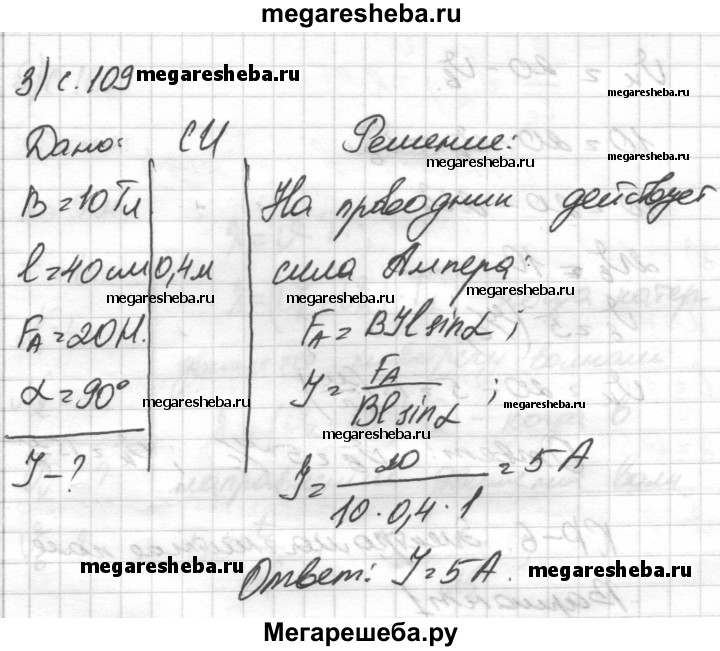 megaresheba.ru
3) с. 109 megaresheba.ru
megaresheba.ru
Дано: СИ Решение:
megaresheba.ru megaresheba.ru
B = 10 Тл На проводник действует
l = 40 см 0,4 м сила Ампера:
megaresheba.ru megaresheba.ru
F_A = 20 Н. F_A = BIl sinα;
α = 90° I = F_A / Bl sinα;
megaresheba.ru megaresheba.ru
megaresheba.ru
I - ? I = 20 / 10 · 0,4 · 1 = 5 А
Ответ: I = 5 А.
megaresheba.ru megaresheba.ru
Мегарешеба.ру